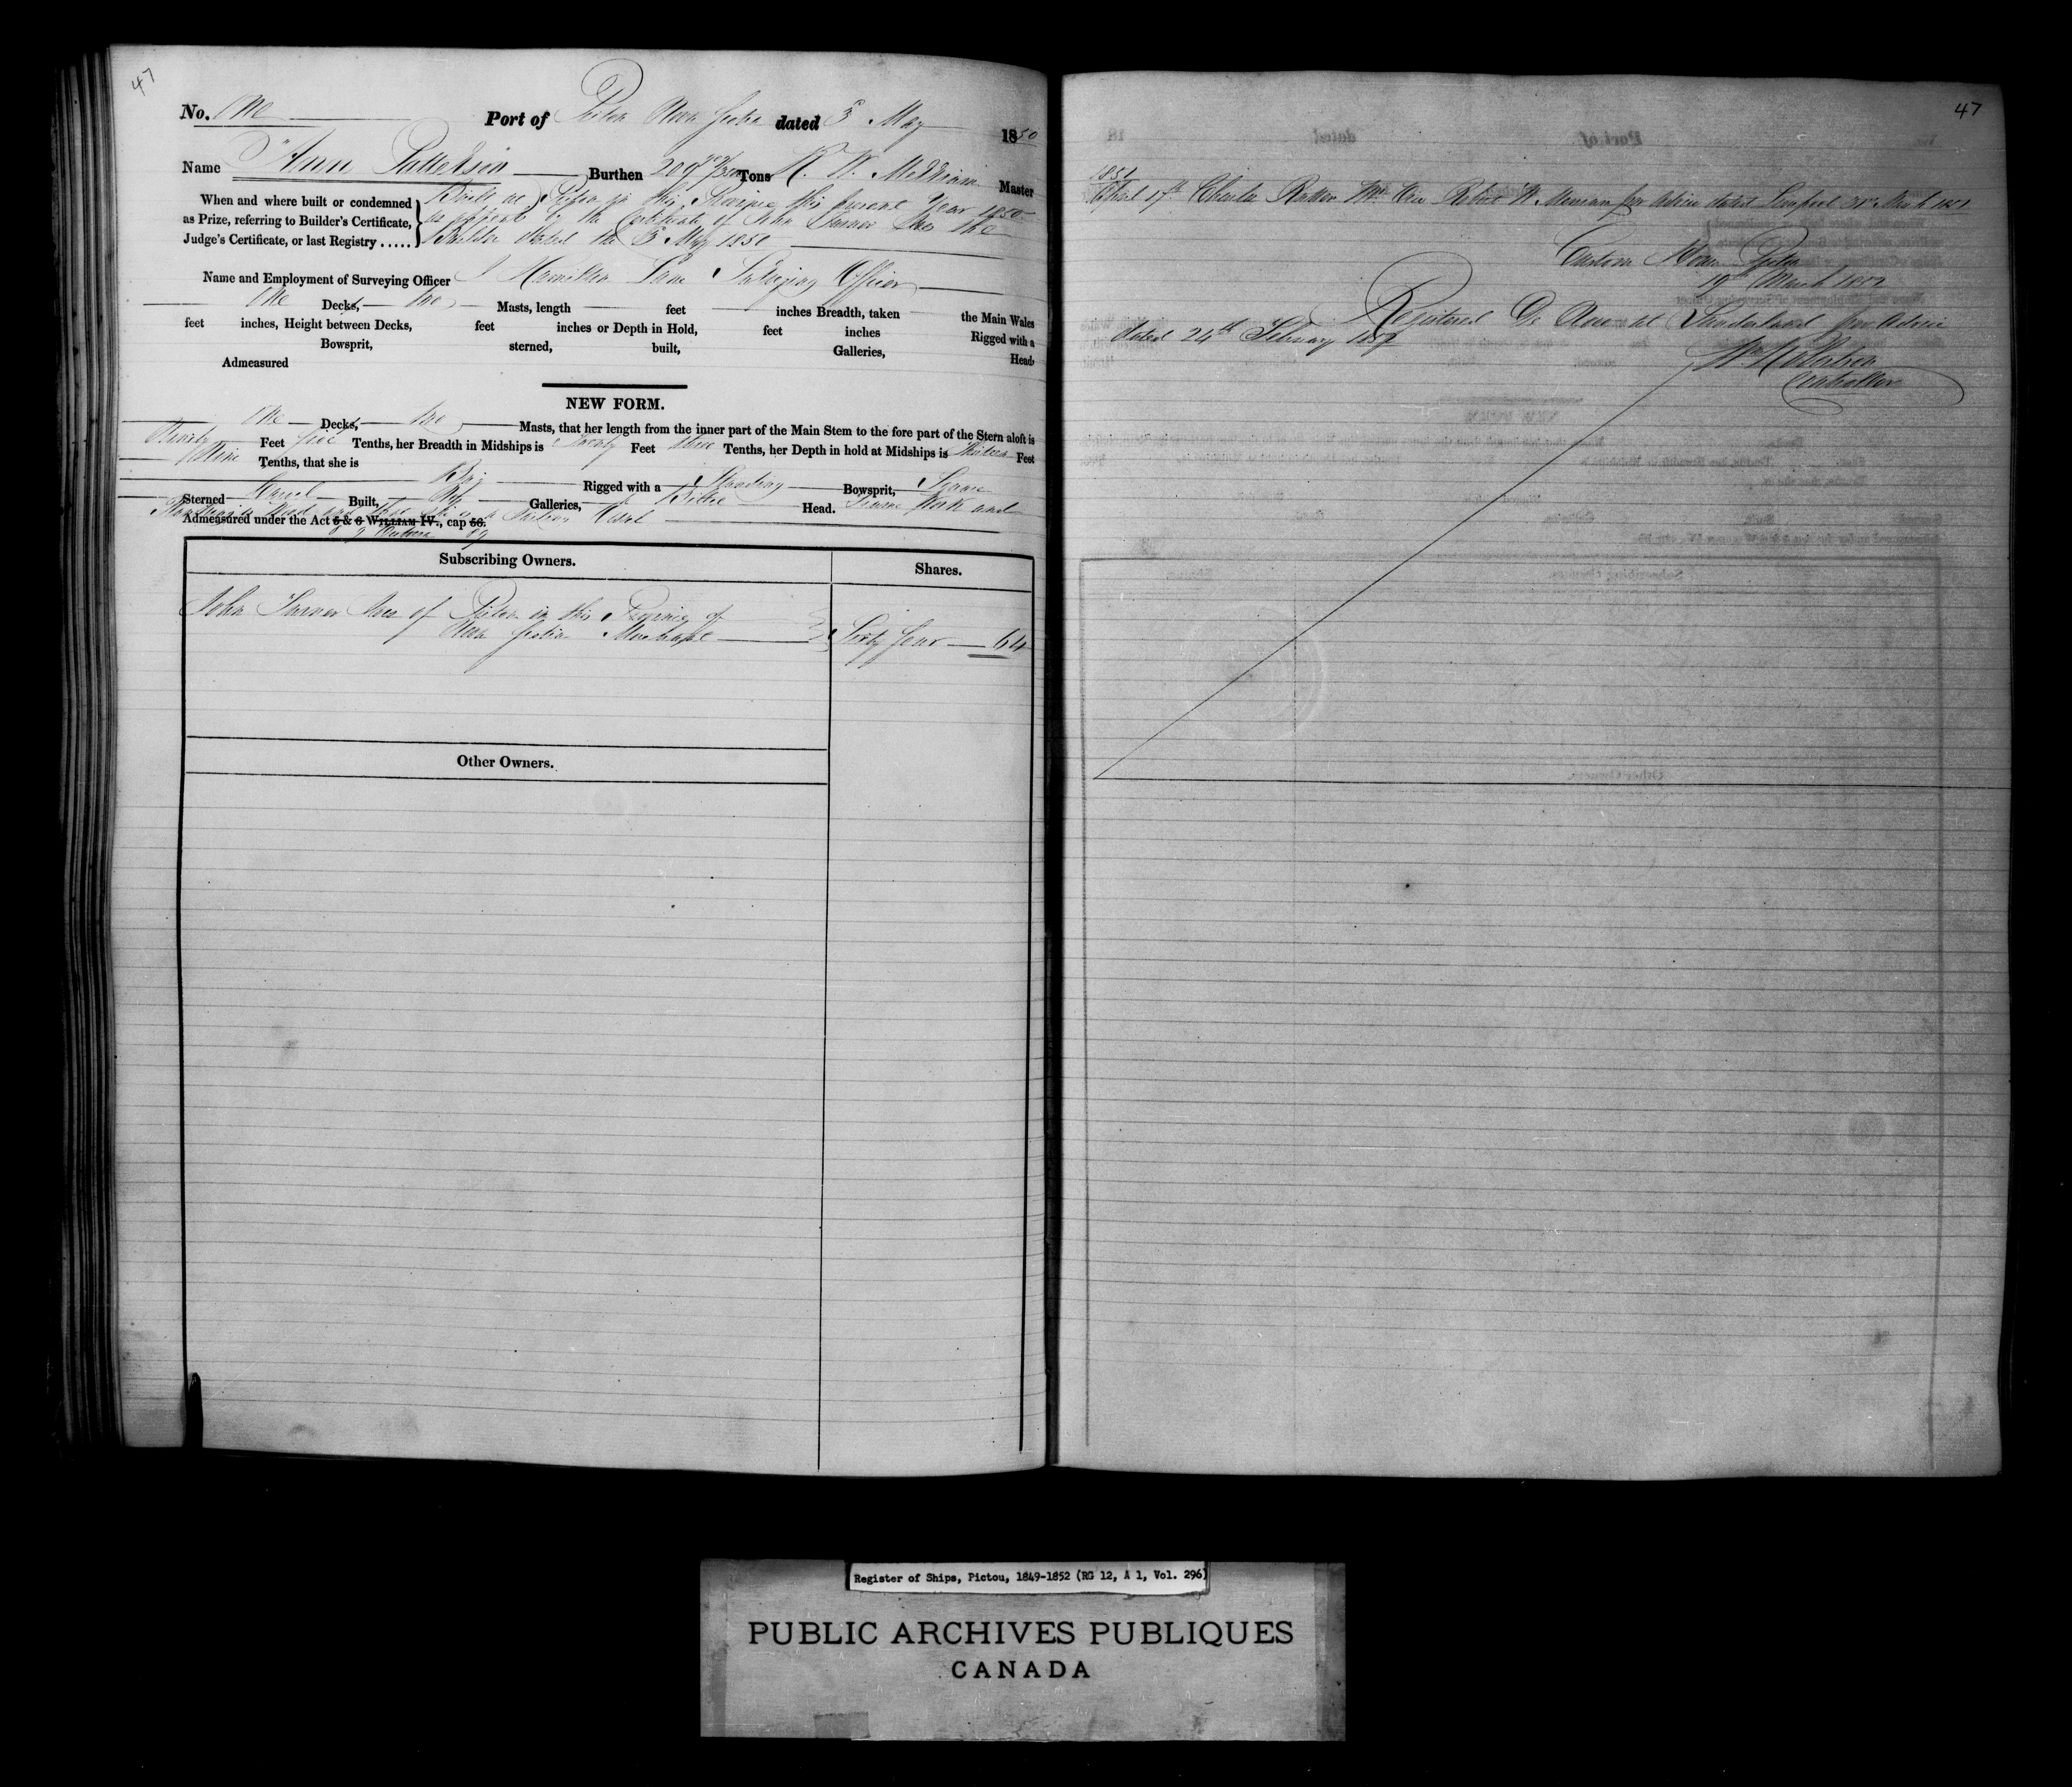 47
No. One Port of Pictou Nova Scotia dated 3 May 1850
Name "Ann Patterson Burthen 209 Tons R. W. Master
When and where built or condemned
as Prize, referring to Builder's Certificate,
Judge's Certificate, or last Registry .....
Built at Pictou in this Province this present Year 1850
as appears by the Certificate of John the
Builder dated the 3 May 1850
Name and Employment of Surveying Officer J Hamilton Lane Surveying Officer
One Decks, two Masts, length feet inches Breadth, taken the Main Wales
feet inches, Height between Decks, feet inches or Depth in Hold, feet inches Rigged with a
Bowsprit, sterned, built, Galleries, Head,
Admeasured
NEW FORM.
One Decks, two Masts, that her length from the inner part of the Main Stem to the fore part of the Stern aloft is
Ninety Feet five Tenths, her Breadth in Midships is Twenty Feet three Tenths, her Depth in hold at Midships is Feet
Nine Tenths, that she is
Brig Rigged with a Standing Bowsprit, Square
Sterned Carvel Built, No Galleries, Billet Head. Frame Work and
Planking is Wood and that she is a Sailing Vessel
Admeasured under the Act 5 & 6 WILLIAM IV., cap 56.
8 & 9 Victoria 89
Subscribing Owners. Shares.
John of Pictou in this Province of
Nova Scotia Merchant Sixty four 64
Other Owners.
47
1851
April 17th Charles Master Robert W. per Advice dated Liverpool March 1851
Custom House Pictou
19th March 1852
Registered De Novo at Sunderland per Advice
dated 24th February 1852
Wm Robertson
Controller
Register of Ships, Pictou, 1849-1852 (RG 12, A 1, Vol. 296)
PUBLIC ARCHIVES PUBLIQUES
CANADA